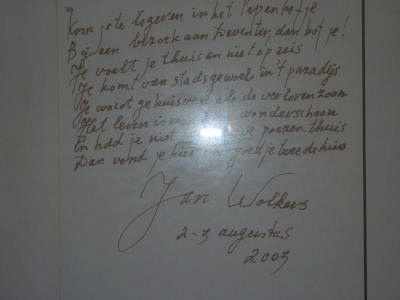 Kom je te logeren in het Papenhofje
Bij een bezoek aan Deventer, dan bof je!
Je voelt je thuis en niet op reis
Je komt van stadsgewoel in 't paradijs
Je wordt gehuisvest als de verloren zoon
Het leven is wonderschoon
En had je niet poezen thuis
Dan vond je hier je tweede huis
Jan Wolkers
2-3 augustus
2003